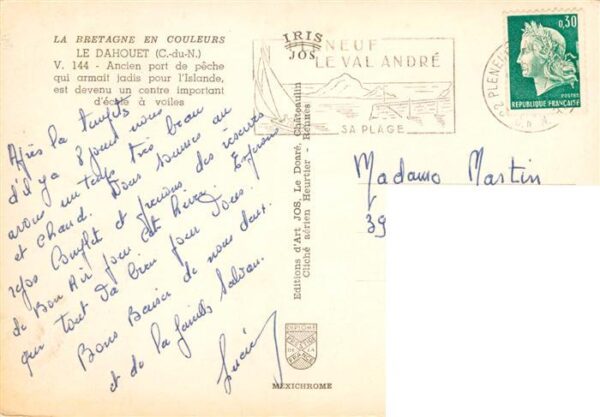 LA BRETAGNE EN COULEURS
LE DAHOUET (C.-du-N.)
V. 144 - Ancien port de pêche
qui armait jadis pour l'Islande,
est devenu un centre important
d'école à voiles
Après la tempête
d'il y a 8 jours nous
avons un temps très beau
et chaud. Nous sommes au
repos Complet et prenons des réserves
de Bon Air pour cet hiver. Espérons
que tout va bien pour vous.
Bons Baisers de nous deux
et de la famille
Lucie
IRIS
JOS
Editions d'Art JOS, Le Doaré, Châteaulin
Cliché aérien Heurtier Rennes
DIPLOME
PRESTIGE
DE LA
FRANCE
MEXICHROME
NEUF
LE VAL ANDRÉ
SA PLAGE
22 PLENEUF
0,30
POSTES
REPUBLIQUE FRANÇAISE
Madame Martin
39